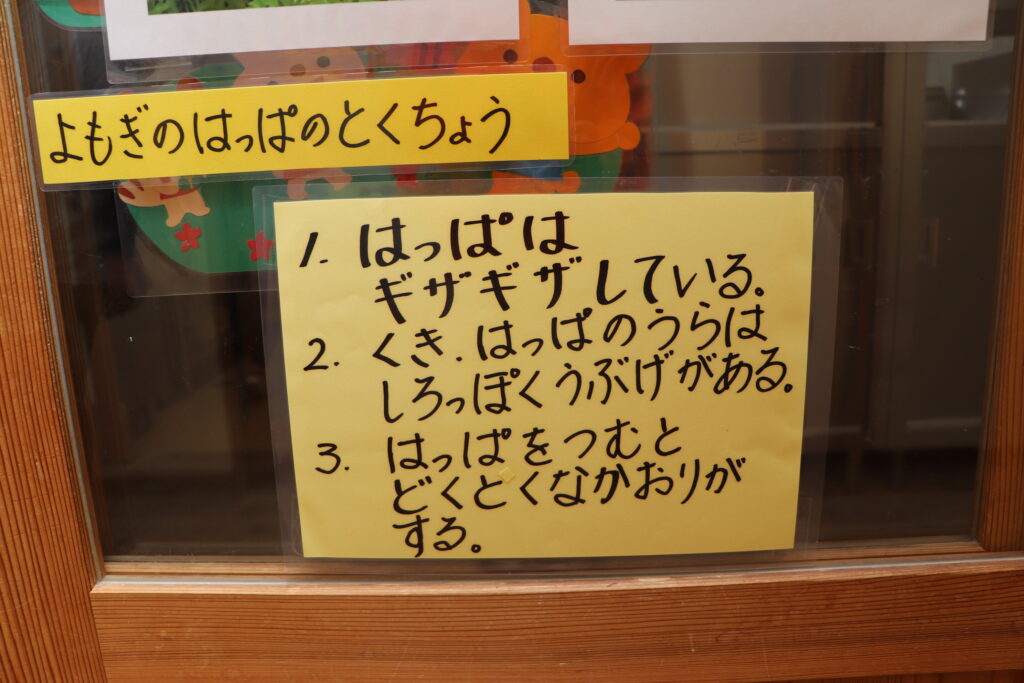 よもぎのはっぱのとくちょう
1. はっぱは
ギザギザしている。
2. くき.はっぱのうらは
しろっぽくうぶげがある。
3. はっぱをつむと
どくとくなかおりが
する。